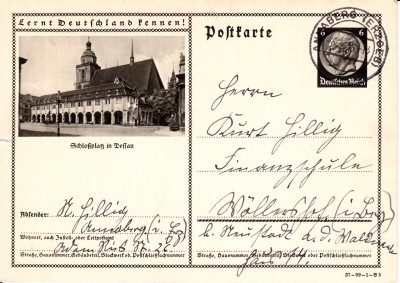 Lernt Deutschland kennen!
Schloßplatz in Dessau
Absender: K. Hillig
Annaberg (i. Erz)
Wohnort, auch Zustell- oder Leitpostamt
Adam Ries St. 22
Straße, Hausnummer, Gebäudeteil, Stockwerk od. Postschließfachnummer
Postkarte
ANNABERG (ERZGEB)
6 6
Deutsches Reich
Herrn
Kurt Hillig
Finanzschule
Wöllershof (i. Bay)
b. Neustadt a. d. Waldnaab
Straße, Hausnummer, Gebäudeteil, Stockwerk oder Postschließfachnummer
Haus
37-99-1-B9